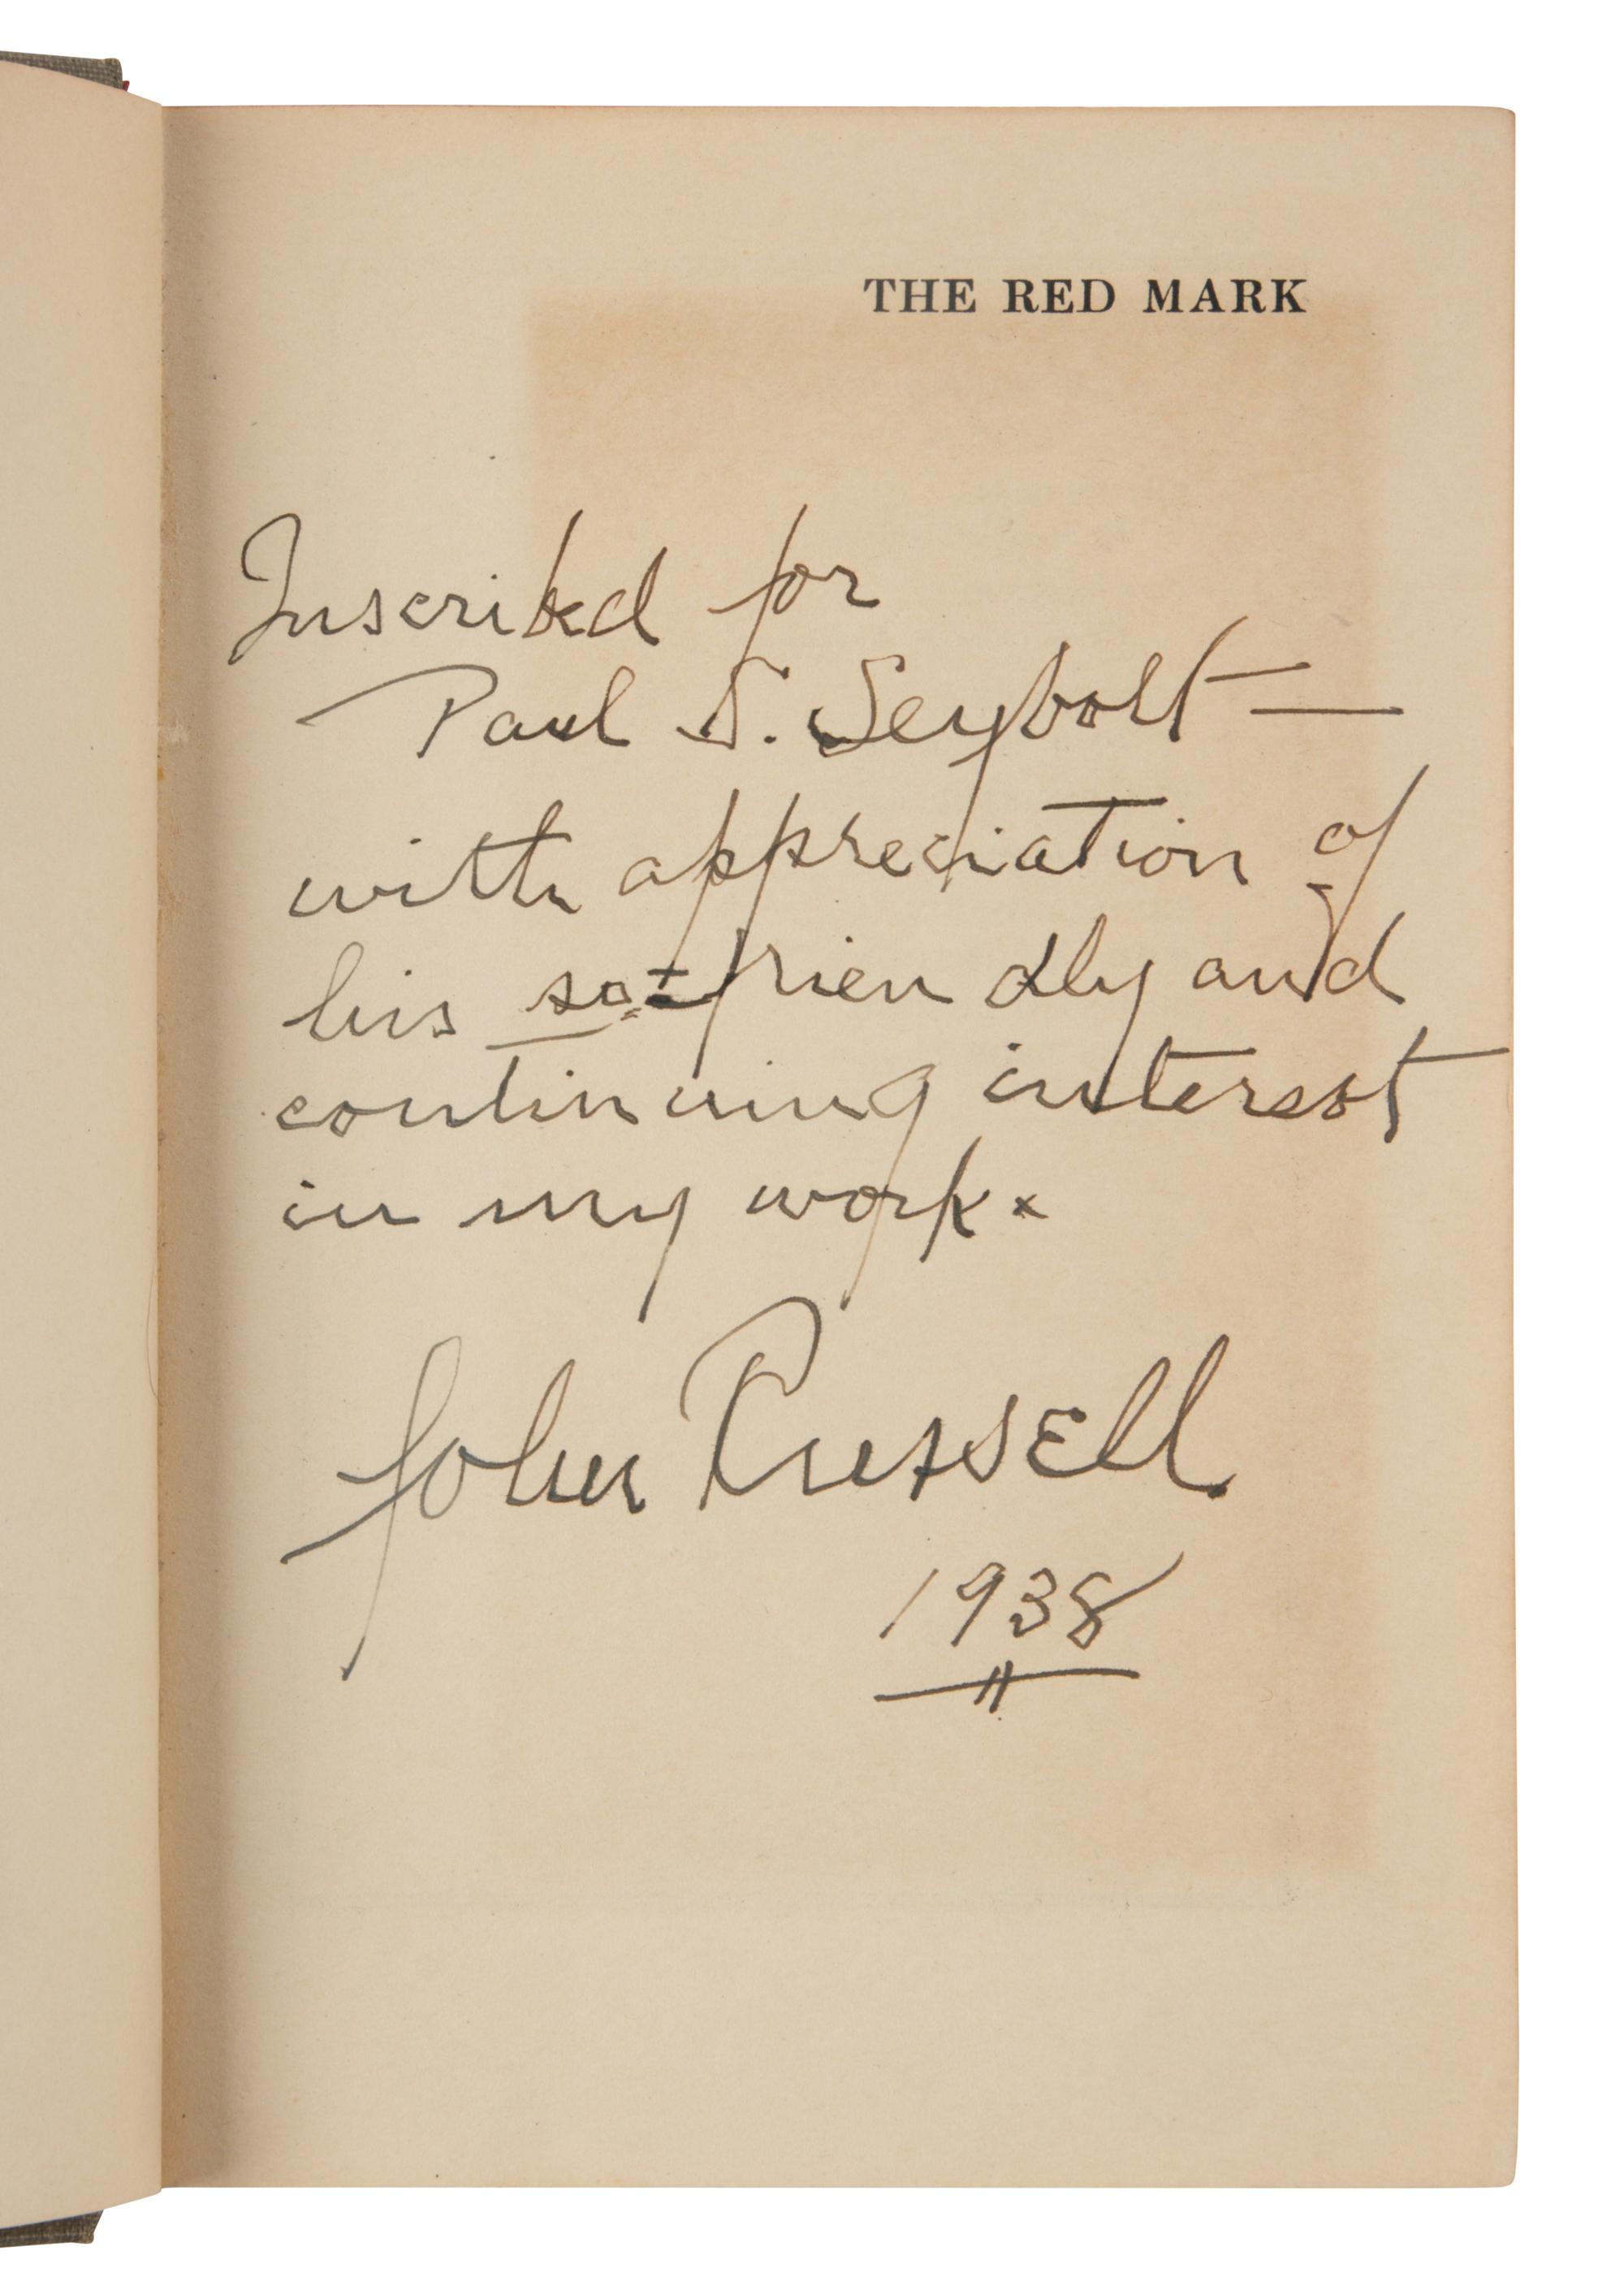 THE RED MARK
Inscribed for
Paul S. Seybolt —
with appreciation of
his so-friendly and
continuing interest
in my work.
John Russell
1938